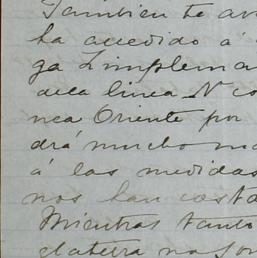 Tambien te av
ha accedido á
ga Zimplem a
della linea N co
nea Oriente por
drá mucho ma
á las medidas
nos han costa
Mientras tanto
glaterra no son